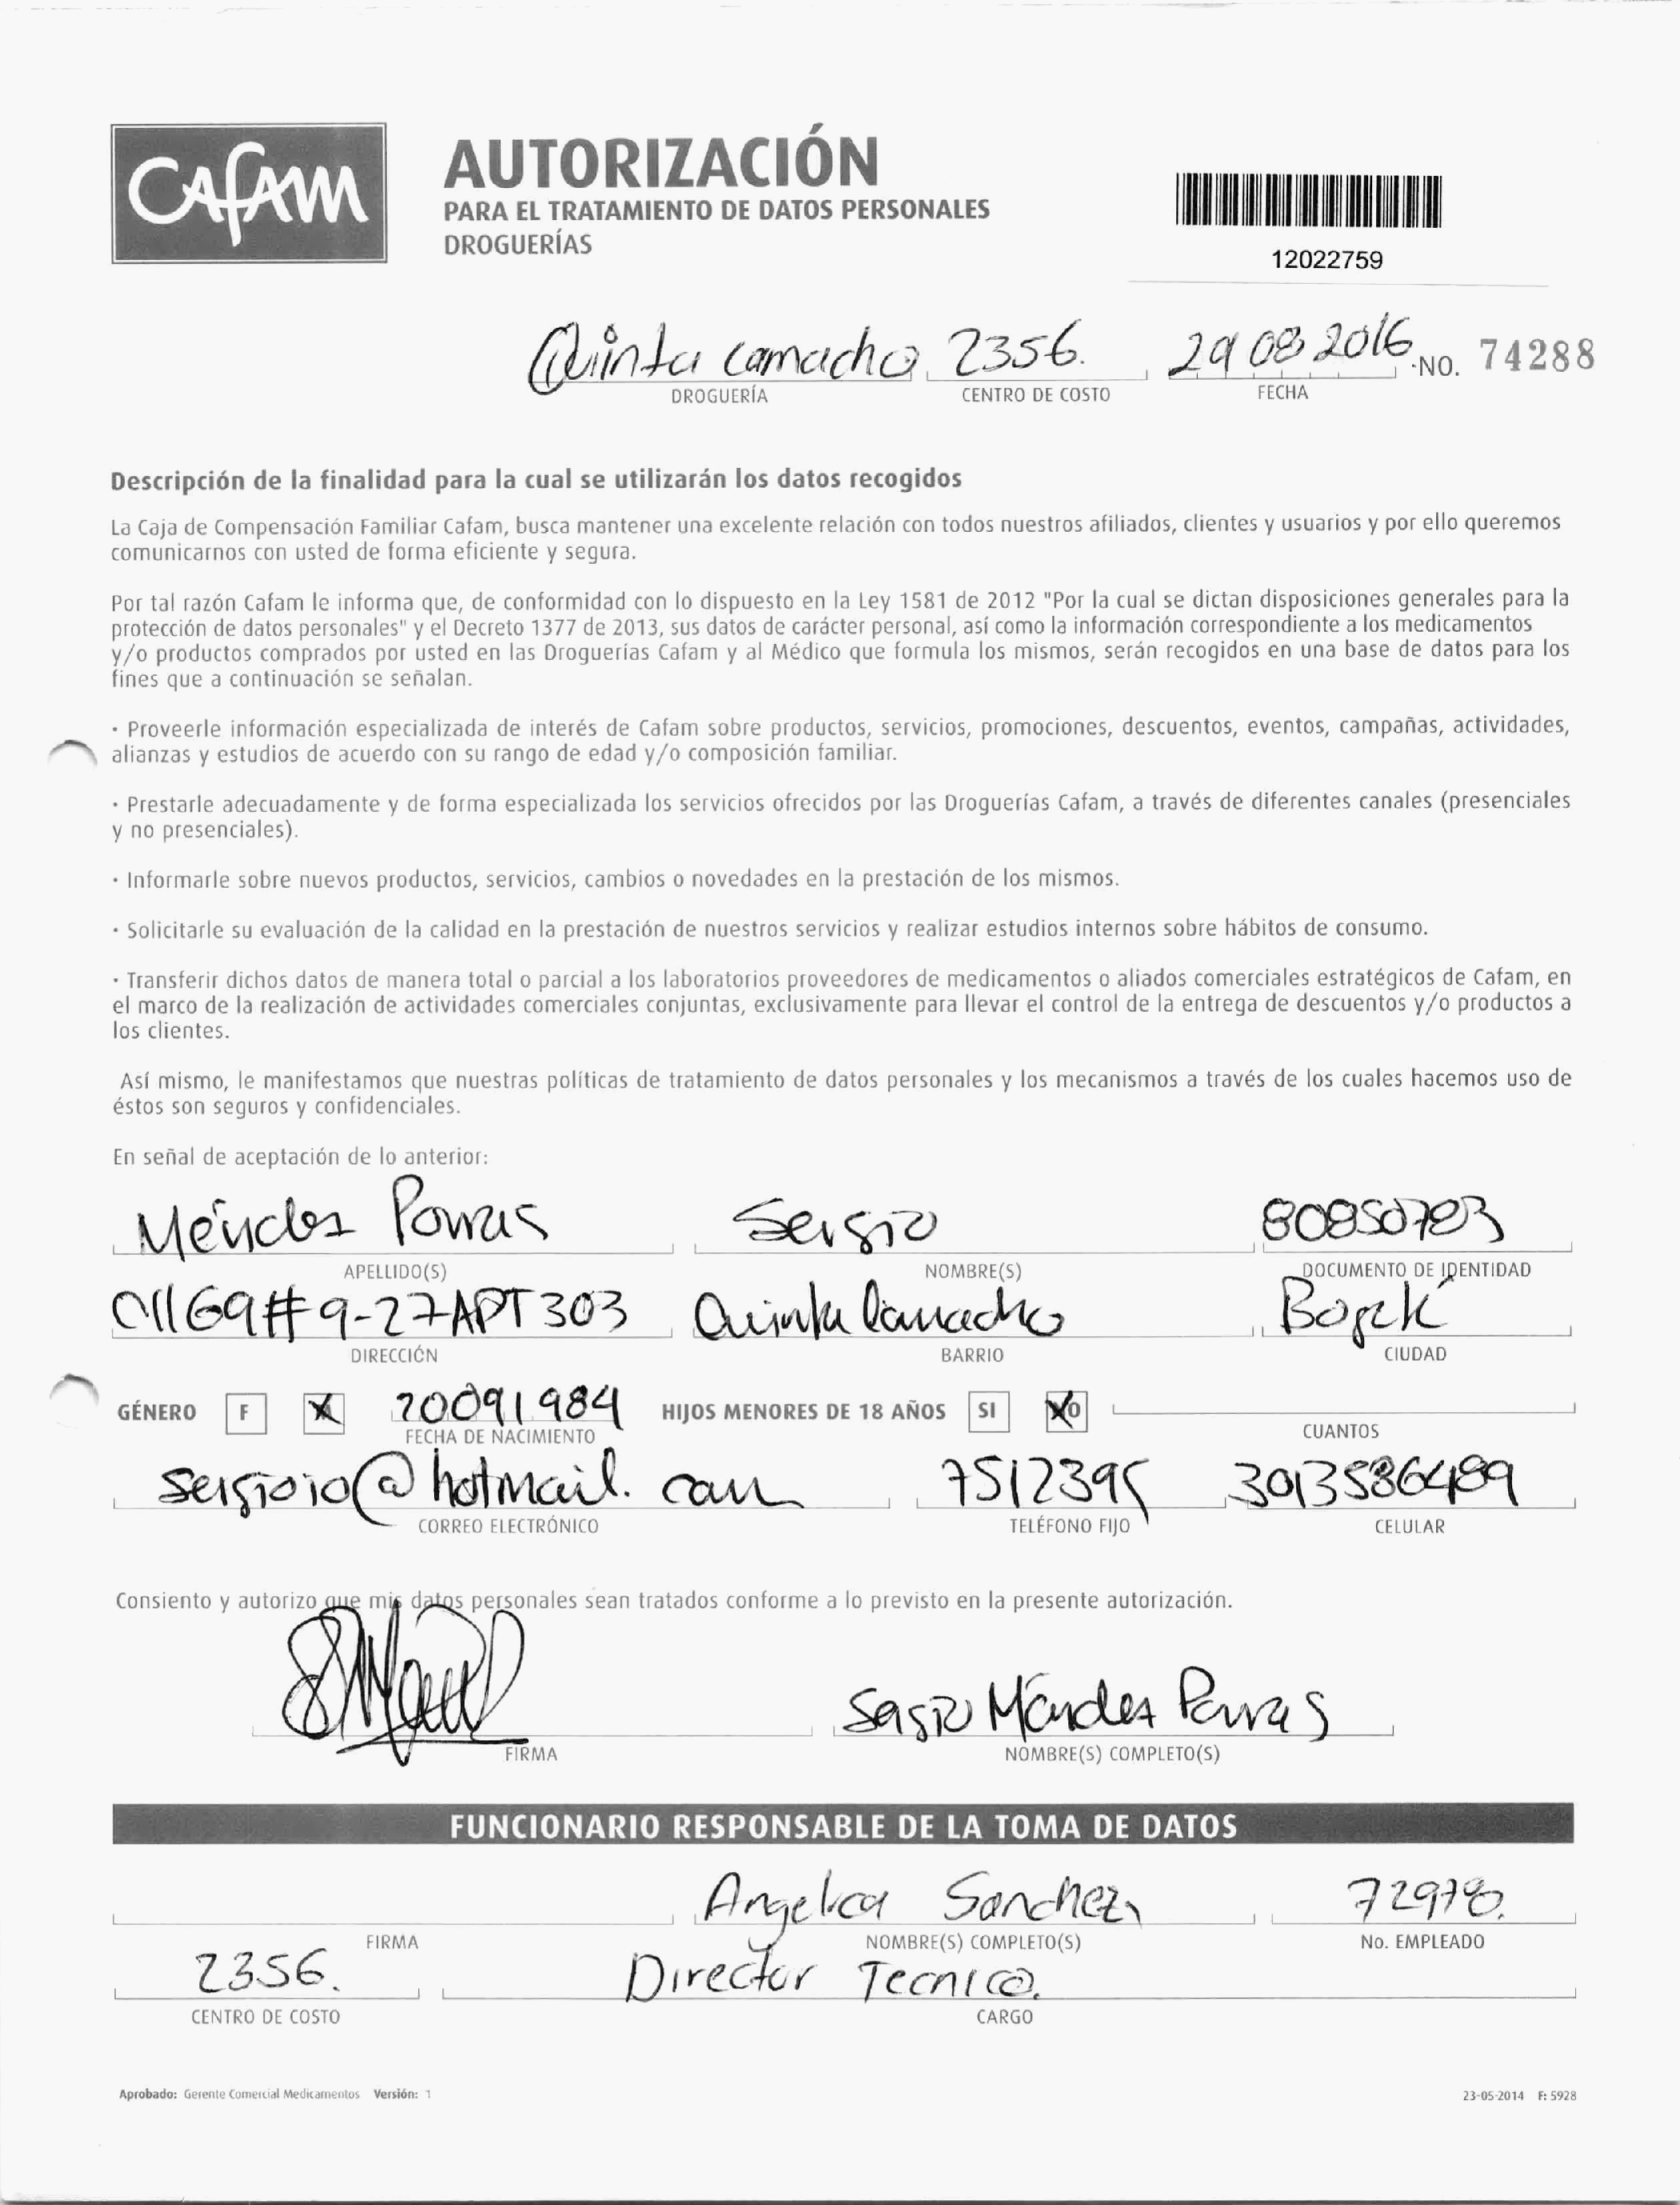 CAFAM
AUTORIZACIÓN
PARA EL TRATAMIENTO DE DATOS PERSONALES
DROGUERÍAS
12022759
Quinta Camacho 2356. 29 08 2016 NO. 74288
DROGUERÍA CENTRO DE COSTO FECHA
Descripción de la finalidad para la cual se utilizarán los datos recogidos
La Caja de Compensación Familiar Cafam, busca mantener una excelente relación con todos nuestros afiliados, clientes y usuarios y por ello queremos
comunicarnos con usted de forma eficiente y segura.
Por tal razón Cafam le informa que, de conformidad con lo dispuesto en la Ley 1581 de 2012 "Por la cual se dictan disposiciones generales para la
protección de datos personales" y el Decreto 1377 de 2013, sus datos de carácter personal, así como la información correspondiente a los medicamentos
y/o productos comprados por usted en las Droguerías Cafam y al Médico que formula los mismos, serán recogidos en una base de datos para los
fines que a continuación se señalan.
· Proveerle información especializada de interés de Cafam sobre productos, servicios, promociones, descuentos, eventos, campañas, actividades,
alianzas y estudios de acuerdo con su rango de edad y/o composición familiar.
· Prestarle adecuadamente y de forma especializada los servicios ofrecidos por las Droguerías Cafam, a través de diferentes canales (presenciales
y no presenciales).
· Informarle sobre nuevos productos, servicios, cambios o novedades en la prestación de los mismos.
· Solicitarle su evaluación de la calidad en la prestación de nuestros servicios y realizar estudios internos sobre hábitos de consumo.
· Transferir dichos datos de manera total o parcial a los laboratorios proveedores de medicamentos o aliados comerciales estratégicos de Cafam, en
el marco de la realización de actividades comerciales conjuntas, exclusivamente para llevar el control de la entrega de descuentos y/o productos a
los clientes.
Así mismo, le manifestamos que nuestras políticas de tratamiento de datos personales y los mecanismos a través de los cuales hacemos uso de
éstos son seguros y confidenciales.
En señal de aceptación de lo anterior:
Méndez Porras Sergio 80850783
APELLIDO(S) NOMBRE(S) DOCUMENTO DE IDENTIDAD
Cll 69 # 9-27 APT 303 Quinta Camacho Bogotá
DIRECCIÓN BARRIO CIUDAD
GÉNERO F 20091984 HIJOS MENORES DE 18 AÑOS SI NO
FECHA DE NACIMIENTO CUANTOS
sergioio@hotmail.com 7512395 3013586489
CORREO ELECTRÓNICO TELÉFONO FIJO CELULAR
Consiento y autorizo que mis datos personales sean tratados conforme a lo previsto en la presente autorización.
Sergio Méndez Porras
FIRMA NOMBRE(S) COMPLETO(S)
FUNCIONARIO RESPONSABLE DE LA TOMA DE DATOS
Angelica Sanchez 72978.
FIRMA NOMBRE(S) COMPLETO(S) No. EMPLEADO
2356. Director Tecnico.
CENTRO DE COSTO CARGO
Aprobado: Gerente Comercial Medicamentos Versión: 1 23-05-2014 F: 5928